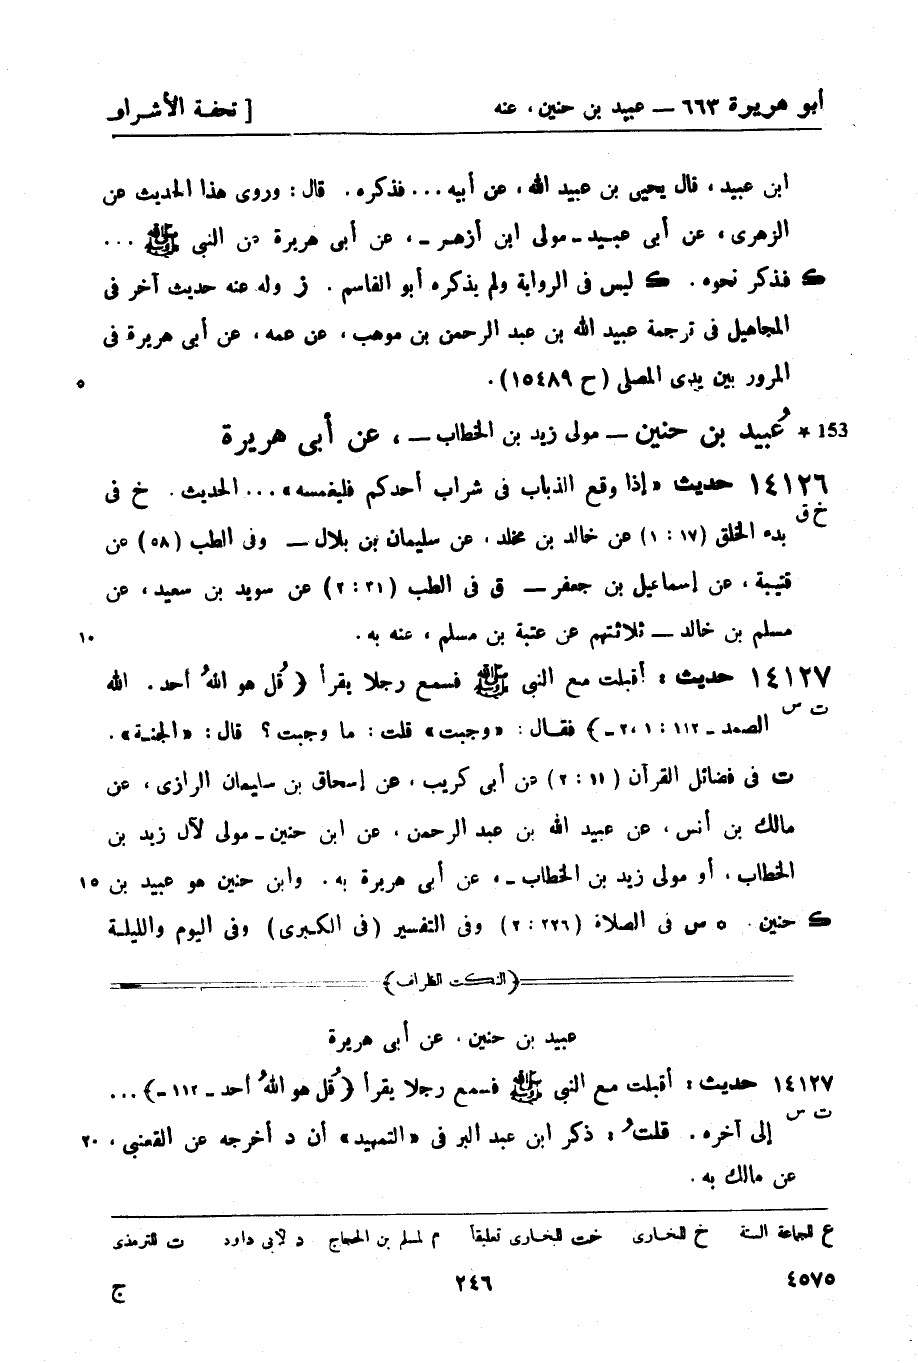 أبو هريرة ٦٦٣ — عبيد بن حنين، عنه [ تحفة الأشراف
ابن عبيد، قال يحيى بن عبيد الله، عن أبيه ... فذكره. قال: وروى هذا الحديث عن
الزهرى، عن أبى عبيد ـ مولى ابن أزهر ـ، عن أبى هريرة عن النبى ﷺ ...
ك فذكر نحوه. ك ليس فى الرواية ولم يذكره أبو القاسم. ز وله عنه حديث آخر فى
المجاهيل فى ترجمة عبيد الله بن عبد الرحمن بن موهب، عن عمه، عن أبى هريرة فى
المرور بين يدى المصلى (ح ١٥٤٨٩). ٥
153 * عُبيد بن حنين — مولى زيد بن الخطاب —، عن أبى هريرة
١٤١٢٦ حديث «إذا وقع الذباب فى شراب أحدكم فليغمسه» ... الحديث. خ فى
خ ق بدء الخلق (١٧ : ١) عن خالد بن مخلد، عن سليمان بن بلال — وفى الطب (٥٨) عن
قتيبة، عن إسماعيل بن جعفر — ق فى الطب (٣١ : ٢) عن سويد بن سعيد، عن
مسلم بن خالد — ثلاثتهم عن عتبة بن مسلم، عنه به. ١٠
١٤١٢٧ حديث: أقبلت مع النبى ﷺ فسمع رجلا يقرأ ﴿ قُل هو اللهُ أحد. الله
ت س الصمد ـ ١١٢ : ١، ٢ ـ﴾ فقال: «وجبت» قلت: ما وجبت؟ قال: «الجنة».
ت فى فضائل القرآن (١١ : ٢) عن أبى كريب، عن إسحاق بن سليمان الرازى، عن
مالك بن أنس، عن عبيد الله بن عبد الرحمن، عن ابن حنين ـ مولى لآل زيد بن
الخطاب، أو مولى زيد بن الخطاب ـ، عن أبى هريرة به. وابن حنين هو عبيد بن ١٥
ك حنين. ٥ س فى الصلاة (٢٢٦ : ٢) وفى التفسير (فى الكبرى) وفى اليوم والليلة
﴿النكت الظراف﴾
عبيد بن حنين، عن أبى هريرة
١٤١٢٧ حديث: أقبلت مع النبى ﷺ فسمع رجلا يقرأ ﴿قُل هو اللهُ أحد ـ ١١٢ ـ﴾ ...
ت س إلى آخره. قلتُ: ذكر ابن عبد البر فى «التمهيد» أن د أخرجه عن القعنبى، ٢٠
عن مالك به.
ع للجماعة الستة خ للبخارى خت للبخارى تعليقاً م لمسلم بن الحجاج د لأبى داود ت للترمذى
٤٥٧٥ ٢٤٦ ج